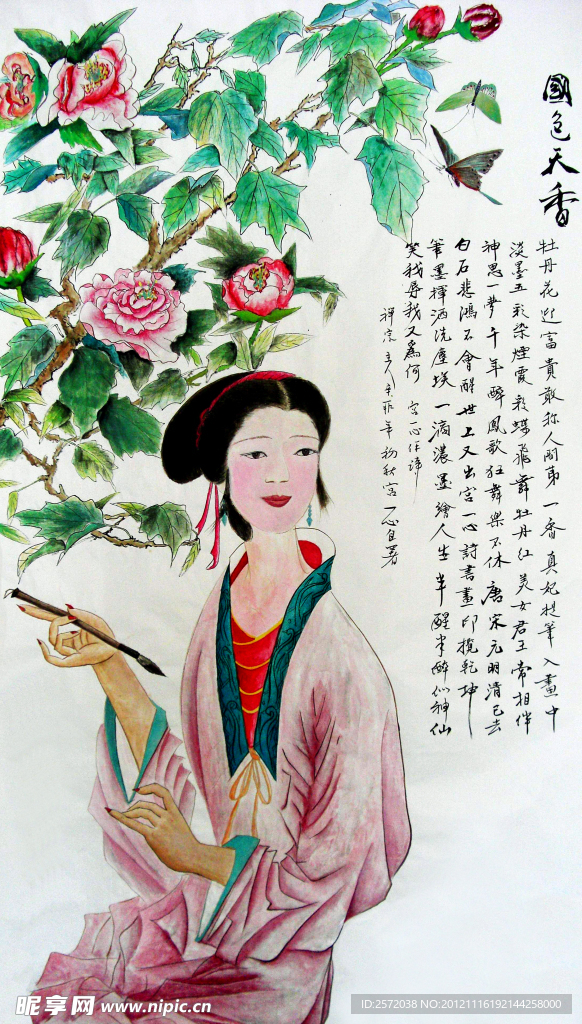 國色天香
牡丹花富貴敢称人間第一香真妃提筆入畫中
淡墨五彩染煙霞彩蝶飛舞牡丹紅美女君王常相伴
神思一夢千年醉鳳歌狂舞樂不休唐宋元明清已去
白石悲鴻不會醒世上又出宮一心詩書畫印攬乾坤
筆墨揮洒洗塵埃一滴濃墨繪人生半醒半醉似神仙
笑我辱我又為何 宮一心作
年初秋宮一心自署
昵享网 www.nipic.cn
ID:2572038 NO:20121116192144258000